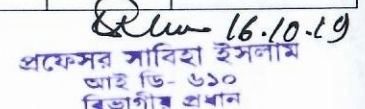 16.10.19
প্রফেসর সাবিহা ইসলাম
আই ডি- ৬১০
বিভাগীয় প্রধান